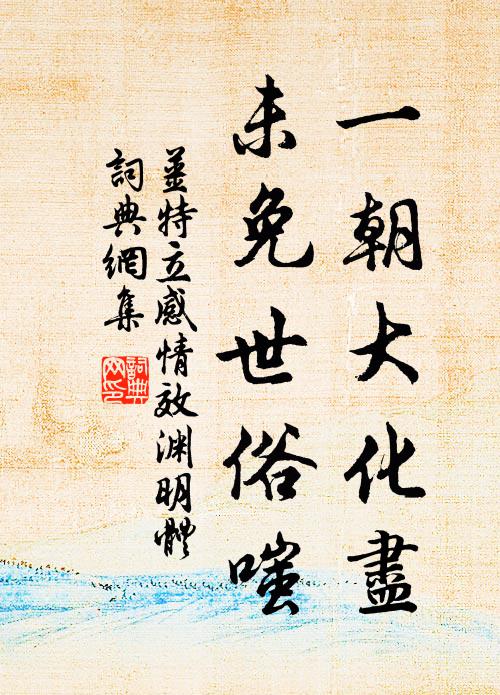 一朝大化盡
未免世俗嗤
薑特立感情效淵明體
詞典網集
詞典網印